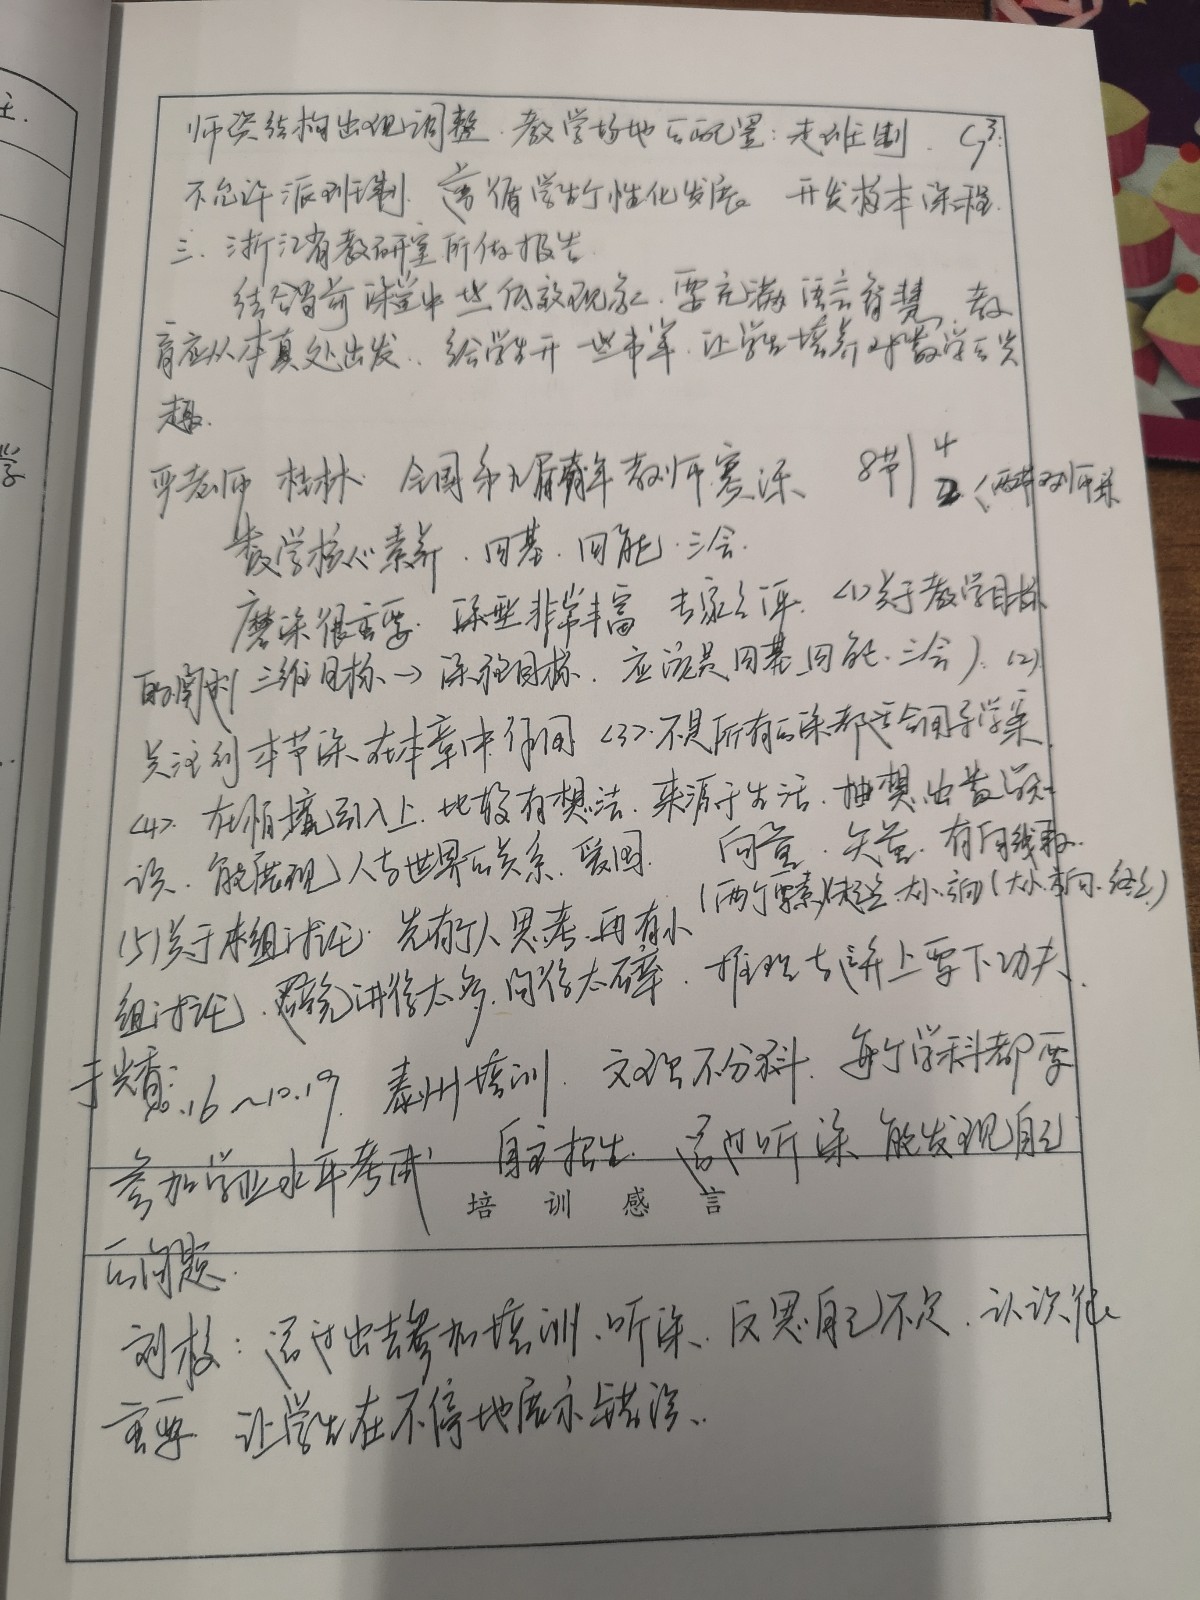 师资结构出现调整. 教学场地的配置: 走班制. C₇³:
不允许派班制. 遵循学生个性化发展. 开发校本课程.
三. 浙江省教研室所做报告.
结合当前课堂中些低效现象. 要充满语言智慧, 教
育应从本真处出发.. 给学生开一些书单. 让学生培养对数学的兴
趣.
严老师 桂林. 全国第九届青年教师赛课 8节 4 2
数学核心素养. 四基. 四能. 三会.
磨课很重要. 课型非常丰富 专家点评. <1>关于教学目标
的 三维目标→课程目标. 应该是四基四能.三会). (2)
关注到本节课在本章中 <3>.不是所有的课都适合用导学案.
<4>. 在情境引入上. 比较有想法. 来源于生活. 抽象出数学知
识. 能展现人与世界的关系. 爱国. 向量. 矢量. 有向线段.
(两个要素) 起点.大小.方向(大小.方向.终点.)
(5)关于小组讨论. 先有个人思考.再有小
组讨论. 讲得太多.问得太碎. 推理与 上要下功夫.
于光香: 10.16~10.19. 泰州培训. 文理不分科. 每个学科都要
参加学业水平考试 自主招生. 通过听课能发现自己
培训感言
的问题.
刘校: 通过出去参加培训.听课. 反思自己不足. 认识很
重要. 让学生在不停地展示与